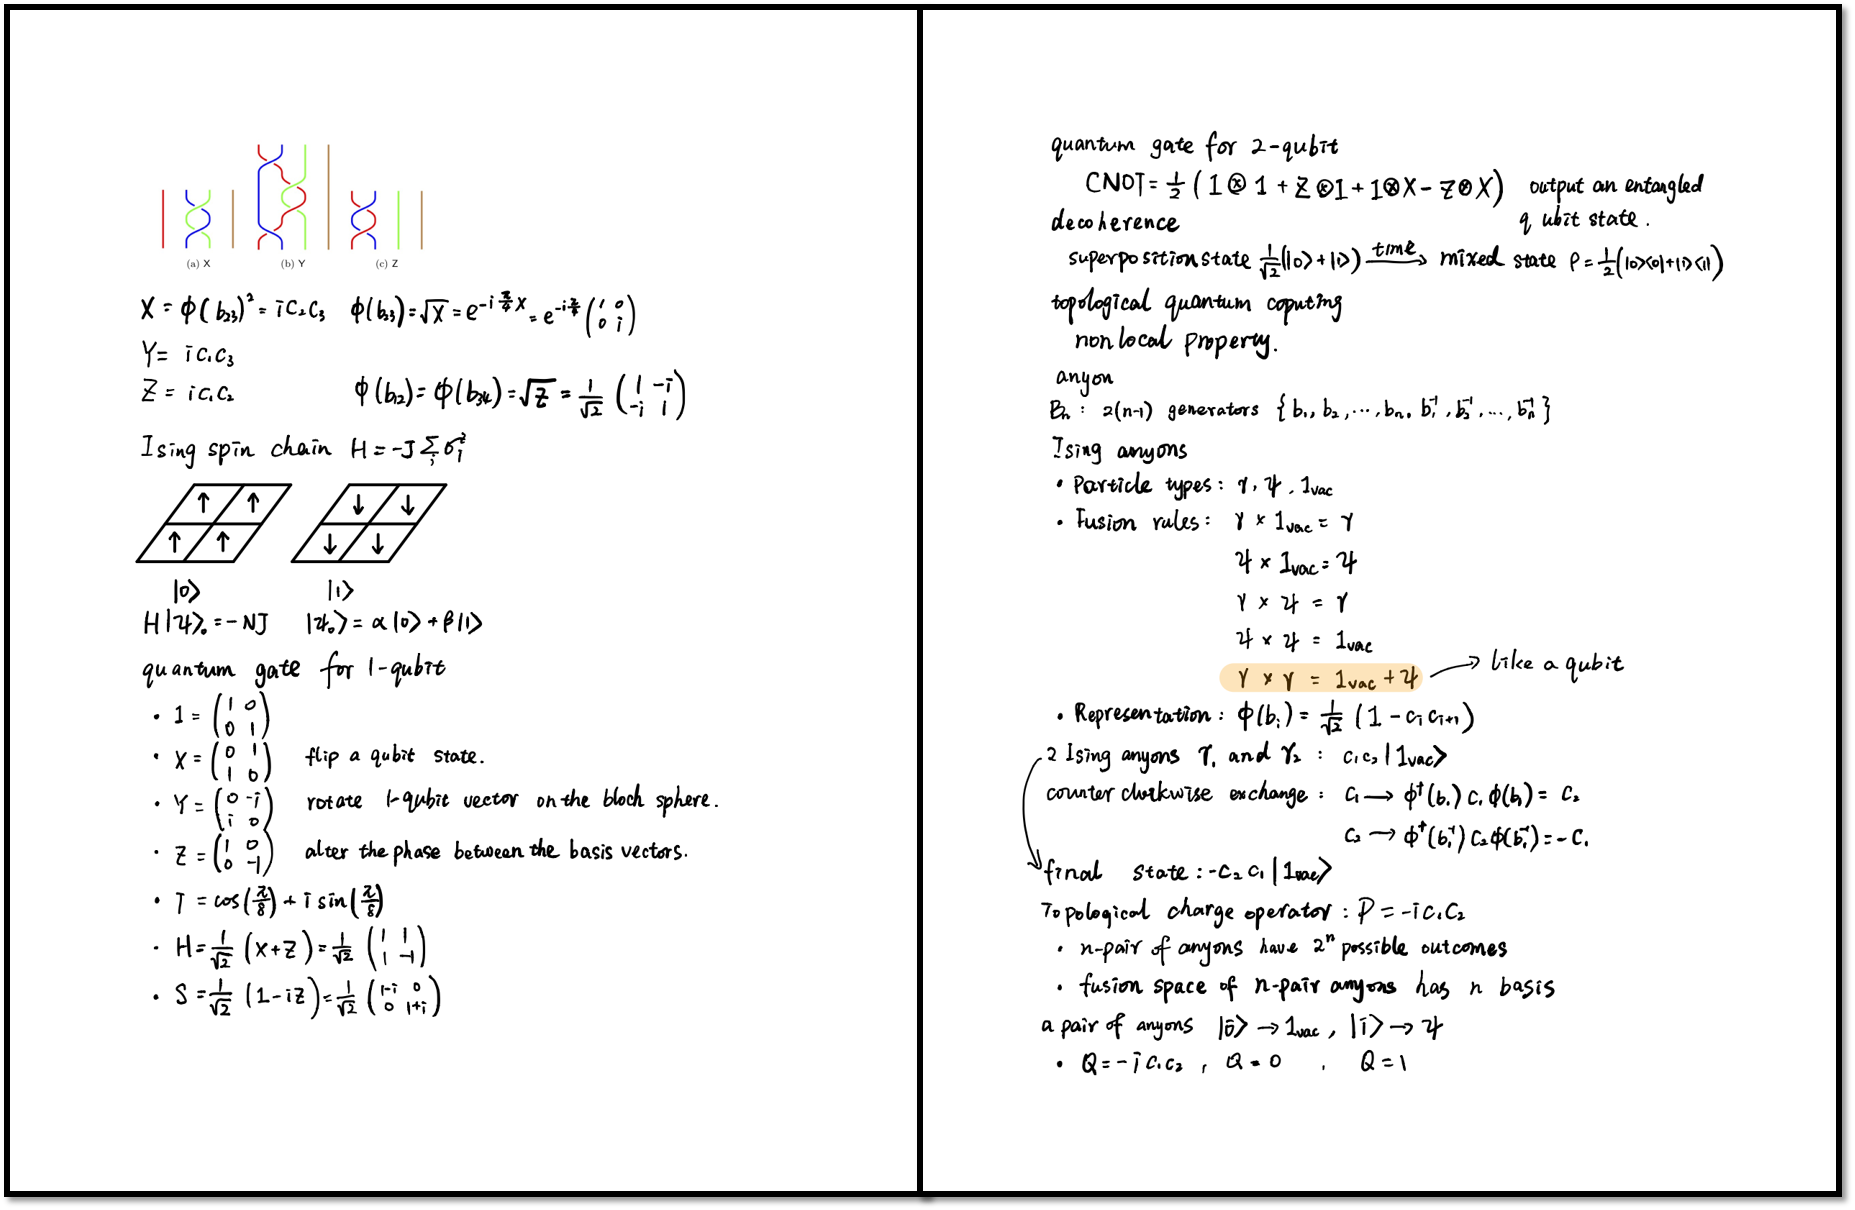 (a) X (b) Y (c) Z
X = ϕ(b₂₃)² = i c₂c₃ ϕ(b₂₃) = √X = e^{-i π/4 X} = e^{-i π/4} (1 0; 0 i)
Y = i c₁c₃
Z = i c₁c₂ ϕ(b₁₂) = ϕ(b₃₄) = √Z = 1/√2 (1 -i; -i 1)
Ising spin chain H = -J Σᵢ σᵢᶻ
↑ ↑ ↓ ↓
↑ ↑ ↓ ↓
|0⟩ |1⟩
H|ψ⟩₀ = -NJ |ψ₀⟩ = α|0⟩ + β|1⟩
quantum gate for 1-qubit
• 1 = (1 0; 0 1)
• X = (0 1; 1 0) flip a qubit state.
• Y = (0 -i; i 0) rotate 1-qubit vector on the bloch sphere.
• Z = (1 0; 0 -1) alter the phase between the basis vectors.
• T = cos(π/8) + i sin(π/8)
• H = 1/√2 (X+Z) = 1/√2 (1 1; 1 -1)
• S = 1/√2 (1-iZ) = 1/√2 (1-i 0; 0 1+i)
quantum gate for 2-qubit
CNOT = 1/2 (1⊗1 + Z⊗1 + 1⊗X - Z⊗X) output an entangled
qubit state.
decoherence
superposition state 1/√2(|0⟩+|1⟩) time→ mixed state ρ = 1/2(|0⟩⟨0|+|1⟩⟨1|)
topological quantum coputing
nonlocal property.
anyon
Bₙ : 2(n-1) generators {b₁, b₂, ⋯, bₙ, b₁⁻¹, b₂⁻¹, ⋯, bₙ⁻¹}
Ising anyons
• Particle types: γ, ψ, 1vac
• Fusion rules: γ × 1vac = γ
ψ × 1vac = ψ
γ × ψ = γ
ψ × ψ = 1vac
γ × γ = 1vac + ψ → like a qubit
• Representation: ϕ(bᵢ) = 1/√2 (1 - cᵢcᵢ₊₁)
2 Ising anyons γ₁ and γ₂ : c₁c₂|1vac⟩
counter clockwise exchange : c₁ → ϕ†(b₁) c₁ ϕ(b₁) = c₂
c₂ → ϕ†(b₁⁻¹) c₂ ϕ(b₁⁻¹) = -c₁
final state : -c₂c₁|1vac⟩
Topological charge operator : P = -i c₁c₂
• n-pair of anyons have 2ⁿ possible outcomes
• fusion space of n-pair anyons has n basis
a pair of anyons |0̄⟩ → 1vac, |1̄⟩ → ψ
• Q = -i c₁c₂ , Q = 0 , Q = 1